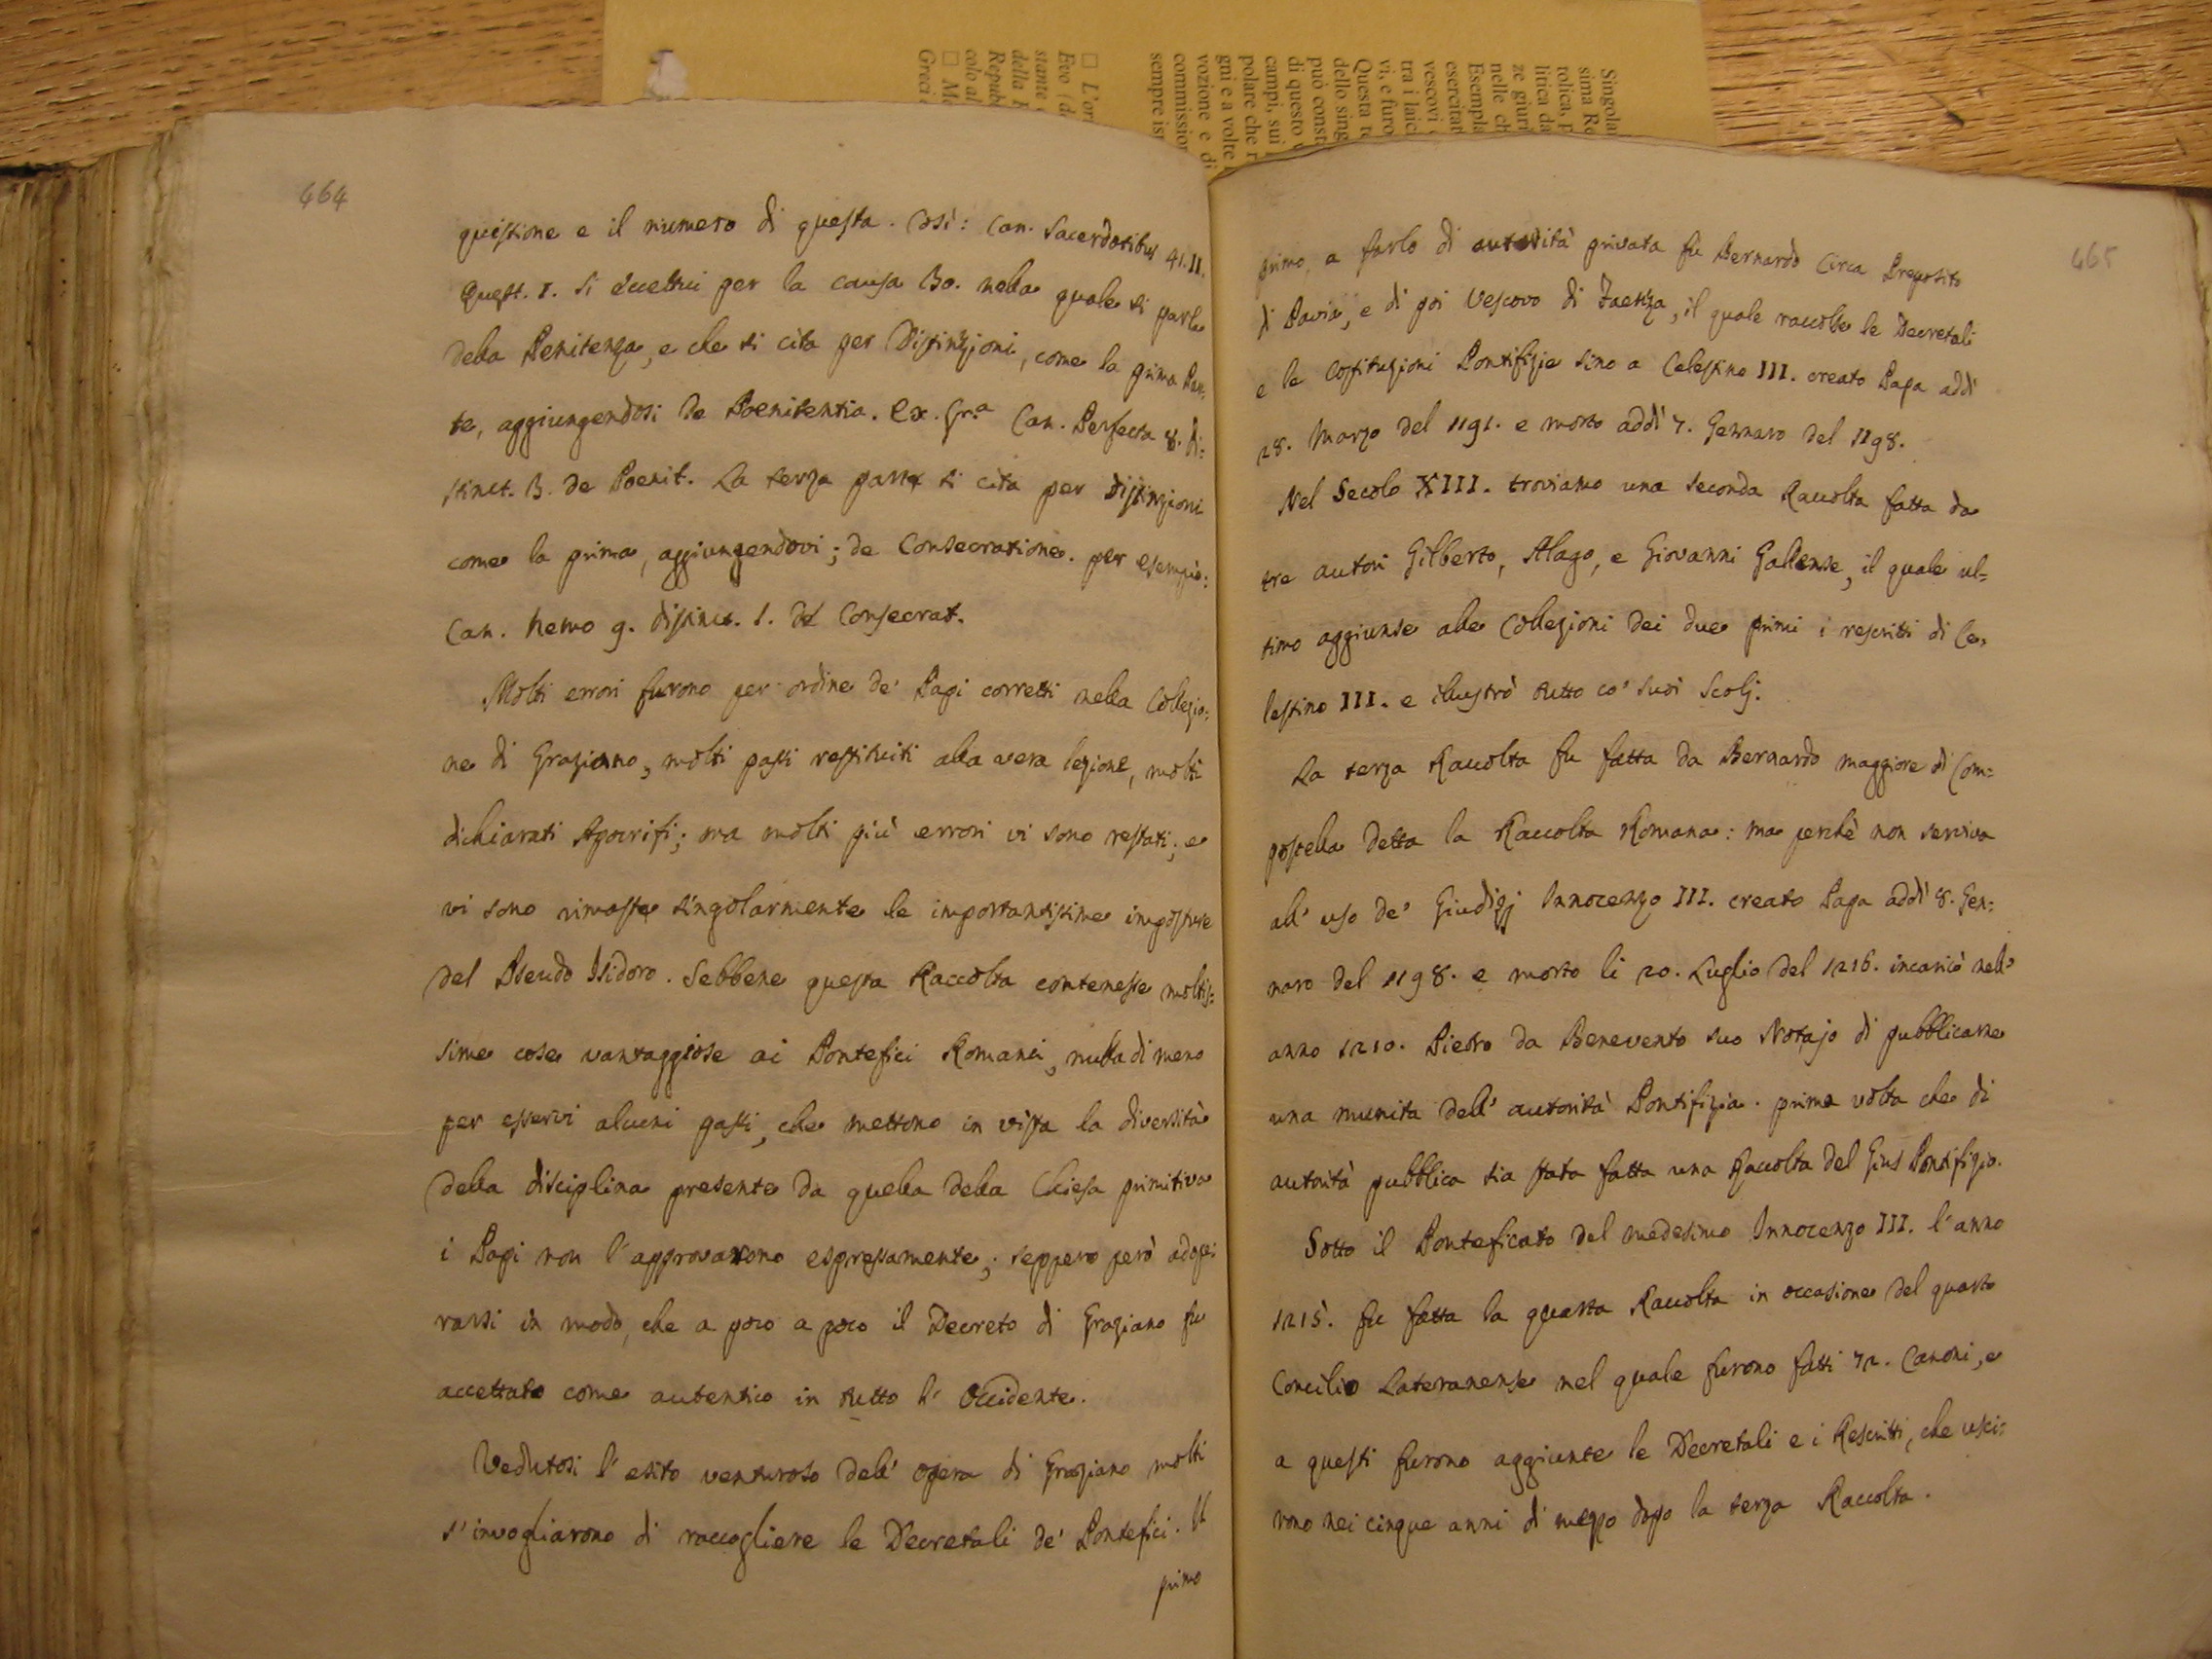 464
questione e il numero di questa. Così: Can. Sacerdotibus 41. II.
Quest. I. Si eccettui per la causa 30. nella quale si parla
della Penitenza, e che si cita per Distinzioni, come la prima Par=
te, aggiungendosi de Poenitentia. Ex. Gr.a Can. Perfecta 8. di=
stinct. 3. de Poenit. La terza parte si cita per distinzioni
come la prima, aggiungendovi; de Consecratione. per esempio:
Can. Nemo 9. distinct. 1. de Consecrat.
Molti errori furono per ordine de' Papi corretti nella Collezio=
ne di Graziano, molti passi restituiti alla vera lezione, molti
dichiarati Apocrifi; ma molti più errori vi sono restati; e
vi sono rimaste singolarmente le importantissime imposture
del Pseudo Isidoro. Sebbene questa Raccolta contenesse moltis=
sime cose vantaggiose ai Pontefici Romani, nulla di meno
per esservi alcuni passi, che mettono in vista la diversità
della disciplina presente da quella della Chiesa primitiva
i Papi non l'approvarono espressamente; seppero però adope=
rarsi in modo, che a poco a poco il Decreto di Graziano fu
accettato come autentico in tutto l'Occidente.
Vedutosi l'esito venturoso dell'opera di Graziano molti
s'invogliarono di raccogliere le Decretali de' Pontefici. Il
primo
465
primo, a farlo di autorità privata fu Bernardo Circa Preposito
di Pavia, e di poi Vescovo di Faenza, il quale raccolse le Decretali
e le Costituzioni Pontifizie sino a Celestino III. creato Papa addì
28. Marzo del 1191. e morto addì 7. Gennaro del 1198.
Nel Secolo XIII. troviamo una seconda Raccolta fatta da
tre autori Gilberto, Alago, e Giovanni Gallense, il quale ul=
timo aggiunse alle Collezioni dei due primi i rescritti di Ce=
lestino III. e illustrò tutto co' suoi Scolj.
La terza Raccolta fu fatta da Bernardo maggiore di Com=
postella detta la Raccolta Romana: ma perchè non serviva
all'uso de' Giudizj Innocenzo III. creato Papa addì 8. Gen=
naro del 1198. e morto li 20. Luglio del 1216. incaricò nell'
anno 1210. Pietro da Benevento suo Notajo di pubblicarne
una munita dell'autorità Pontifizia. prima volta che di
autorità pubblica sia stata fatta una Raccolta del Gius Pontifizio.
Sotto il Ponteficato del medesimo Innocenzo III. l'anno
1215. fu fatta la quarta Raccolta in occasione del quarto
Concilio Lateranense nel quale furono fatti 72. Canoni, e
a questi furono aggiunte le Decretali e i Rescritti, che usci=
rono nei cinque anni di mezzo dopo la terza Raccolta.